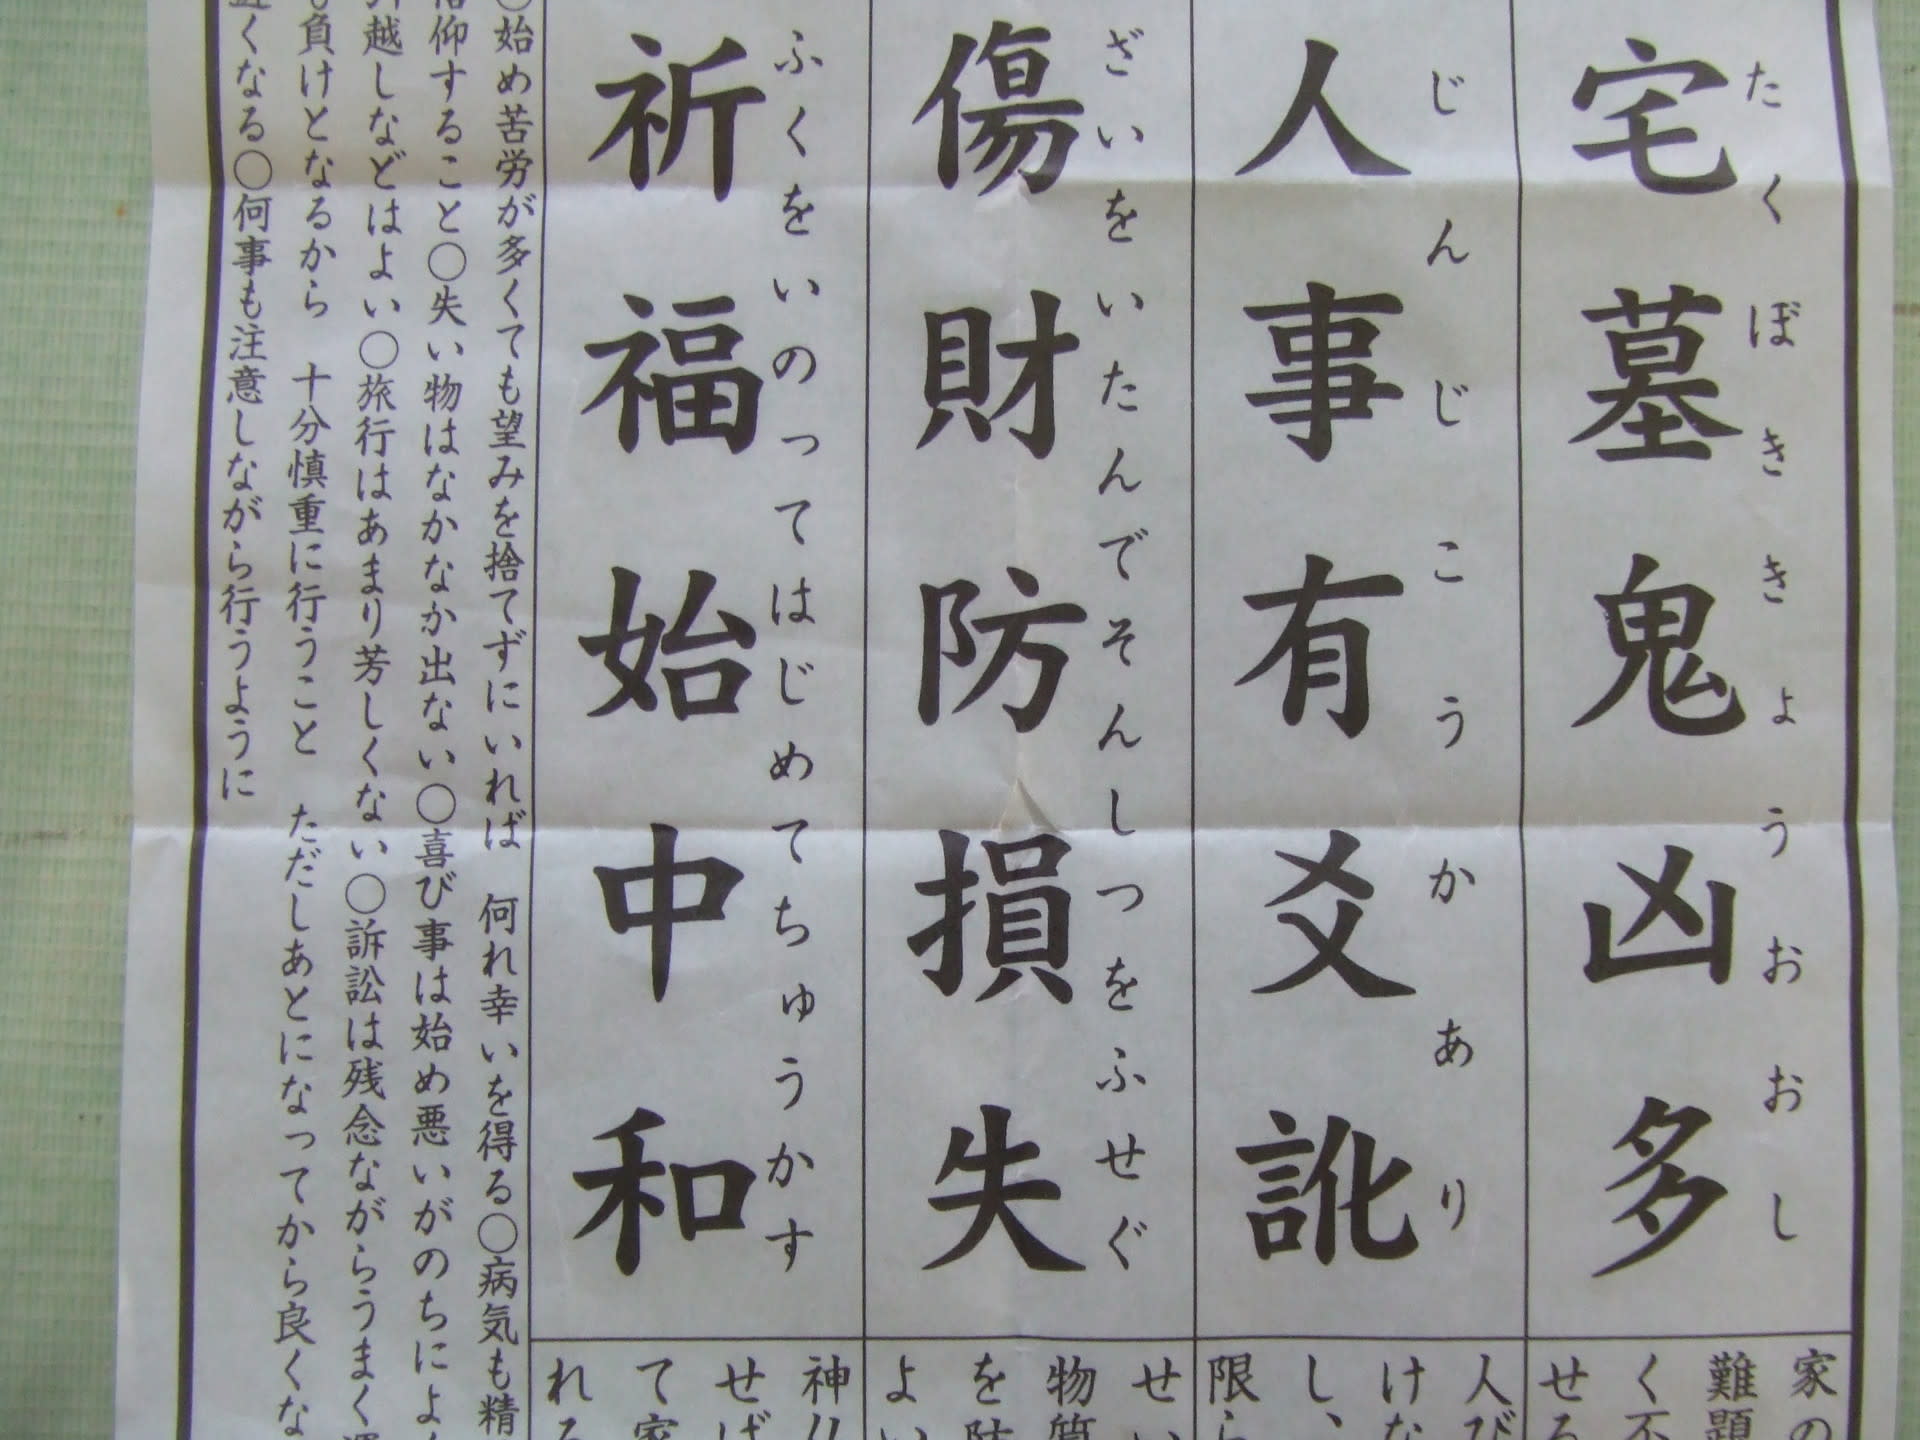 たくぼききょうおおし
宅墓鬼凶多
じんじこうかあり
人事有爻訛
ざいをいたんでそんしつをふせぐ
傷財防損失
ふくをいのってはじめてちゅうかす
祈福始中和
家の
難題
く不
せる
人び
けな
し、
限ら
せい
物質
を防
よい
神仏
せば
て家
れる
○始め苦労が多くても望みを捨てずにいれば 何れ幸いを得る○病気も精
信仰すること○失い物はなかなか出ない○喜び事は始め悪いがのちによく
引越しなどはよい○旅行はあまり芳しくない○訴訟は残念ながらうまく運
も負けとなるから 十分慎重に行うこと ただしあとになってから良くな
くなる○何事も注意しながら行うように